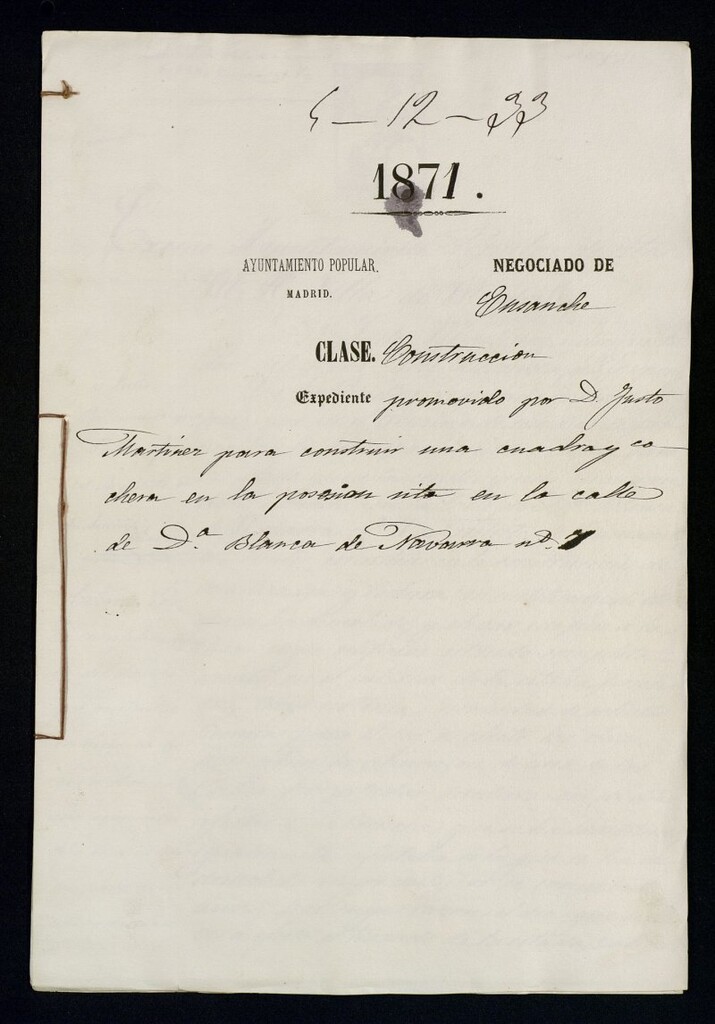 5-12-33
1871.
AYUNTAMIENTO POPULAR.
MADRID.
NEGOCIADO DE
Ensanche
CLASE. Construccion
Expediente promovido por D. Justo
Martinez para construir una cuadra y co
chera en la posesion sita en la calle
de D.ª Blanca de Navarra nº 7